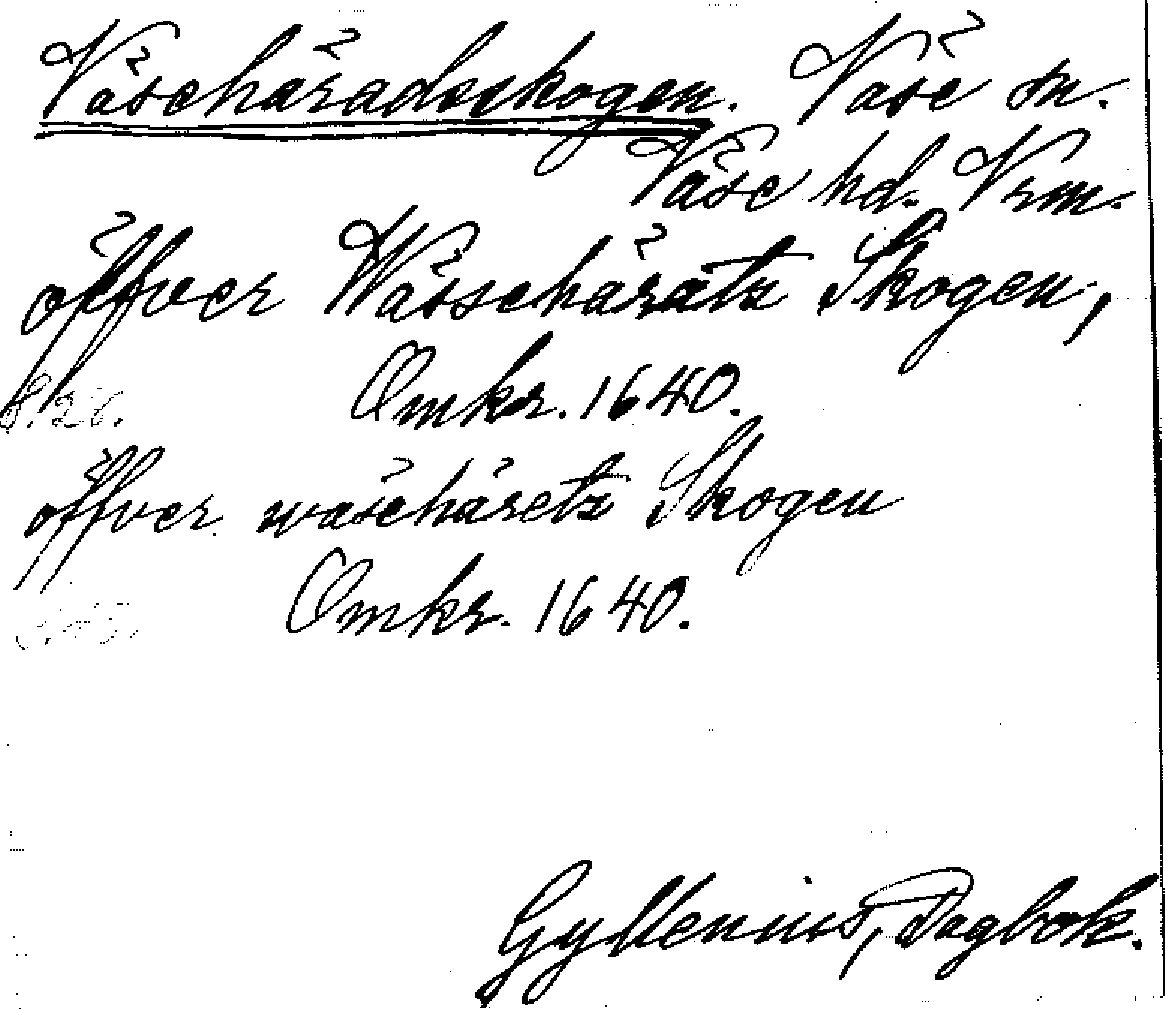 Väsehäradsskogen. Väse sn.
Väse hd. Vrm.
öffver Wässehärätz Skogen,
S. 26. Omkr. 1640.
öffver wäsehäretz Skogen
Omkr. 1640.
Gyllenius, Dagbok.